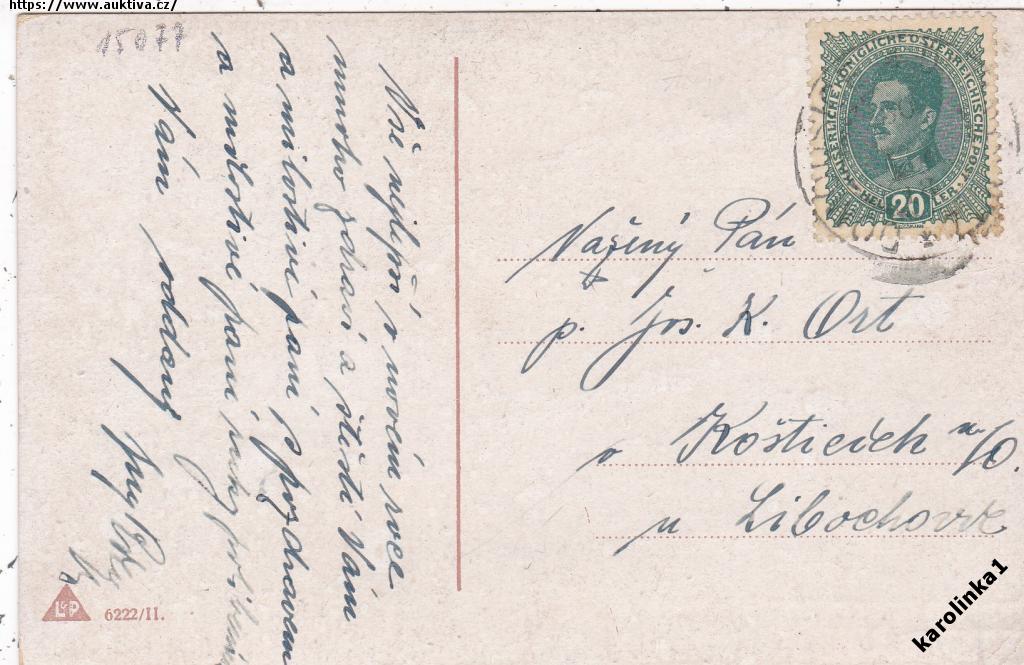 https://www.auktiva.cz/
15077
Vše nejlepší v novém roce
mnoho zdraví a štěstí Vám
a milostivé paní s pozdravem
a milostivé paní ruky políbení
Vám oddaný
KAISERLICHE KÖNIGLICHE ÖSTERREICHISCHE POST
20
Vážený Pán
p. Jos. K. Ort
v Košticích n/O.
u Libochovic
L&P
6222/II.
karolinka1